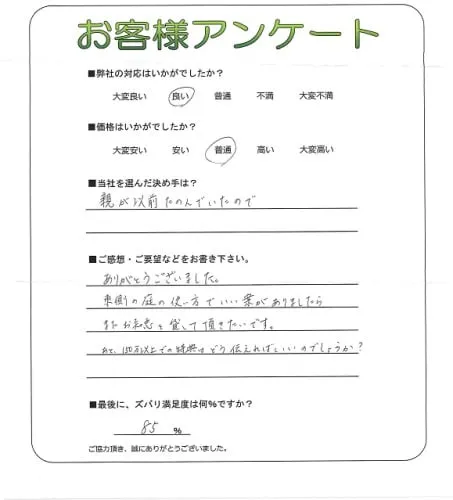 お客様アンケート
■弊社の対応はいかがでしたか？
大変良い 良い 普通 不満 大変不満
■価格はいかがでしたか？
大変安い 安い 普通 高い 大変高い
■当社を選んだ決め手は？
親が以前たのんでいたので
■ご感想・ご要望などをお書き下さい。
ありがとうございました。
東側の庭の使い方でいい案がありましたら
またお知恵を貸して頂きたいです。
あと、150万以上での特典はどう伝えればいいのでしょうか？
■最後に、ズバリ満足度は何%ですか？
85 %
ご協力頂き、誠にありがとうございました。